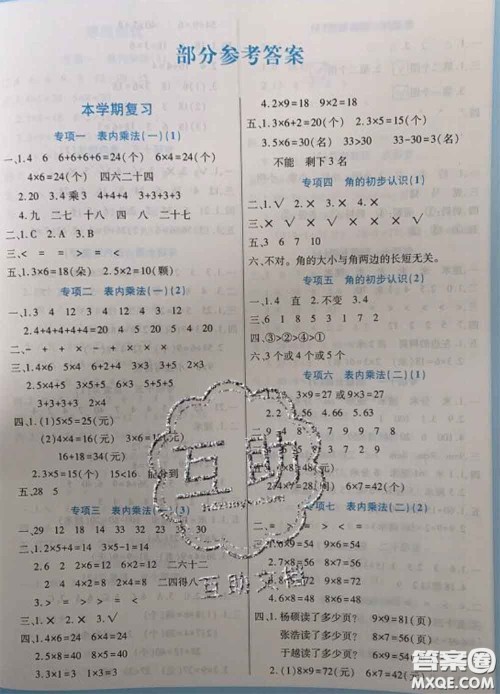 部分参考答案
本学期复习
专项一 表内乘法(一)(1)
一、1.4 6 6+6+6+6=24(个) 6×4=24(个)
4×6=24(个) 四六二十四
2.20 3.4 乘3 4+4+4 3+3+3+3
4.九 二七 十八 四八 二十七
二、1.C 2.A 3.B
三、< = = > = <
五、1.3×6=18(朵) 2.5×2=10(颗)
专项二 表内乘法(一)(2)
一、1.3 4 12 3 4 12 4 3 12
2.4+4+4+4+4=20 4 5 20 5 4 20
二、- + × - + - × × ×
三、1.4×5 3×6 2×4 3×5 2×5
2.5×4 5+5+5+5 3×5 5+5+5
3+3+3+3+3
四、1.(1)5×5=25(元)
(2)4×4=16(元)
16+18=34(元)
2.3×5=15(个) 15<16
五、28 5
专项三 表内乘法(一)(3)
一、29 12 18 14 33 32 23 35 30
二、1.2×5+4=14 3×5-1=14
2.6 2 2+2+2+2+2+2=12 二六十二
2 4 4×2=8 2×4=8 二四得八
3.> = < = > =
三、1.× 2.√ 3.×
四、1.4×6=24 6×4=24
2.5×6=30 6×5=30
3.3×1=3 1×3=3
4.2×9=18 9×2=18
五、1.3×6+2=20(个) 2.5×6=30(个)
3.5×6=30(名) 33>30 33-30=3(名)
不能 剩下3名
专项四 角的初步认识(1)
一、1.√ 2.× × × √ × × ×
三、× × × √ ×
五、3 6 7 10
六、不对。角的大小与角两边的长短无关。
专项五 角的初步认识(2)
一、1.4 直 2.不变 3.4
三、6 1 8 5 1 2 3 2 4
四、③>②>④>①
六、3个或4个或5个
专项六 表内乘法(二)(1)
一、1.3×9=27或9×3=27
2.4.56 4.28 4.2 8
二、> > < = > <
四、6×8=48(元) 6×7=42(个)
专项七 表内乘法(二)(2)
二、= > = > < =
三、1.6×9=54 9×6=54
2.7×8=56 8×7=56
3.5×8=40 8×5=40
4.6×8=48 8×6=48
四、1.杨硕读了多少页? 9×9=81(页)
张浩读了多少页? 8×7=56(页)
于越读了多少页? 6×9=54(页)
2.(1)8×9=72(元) 6×7=42(元)
互助
互助文档
答案圈
MXQE.COM